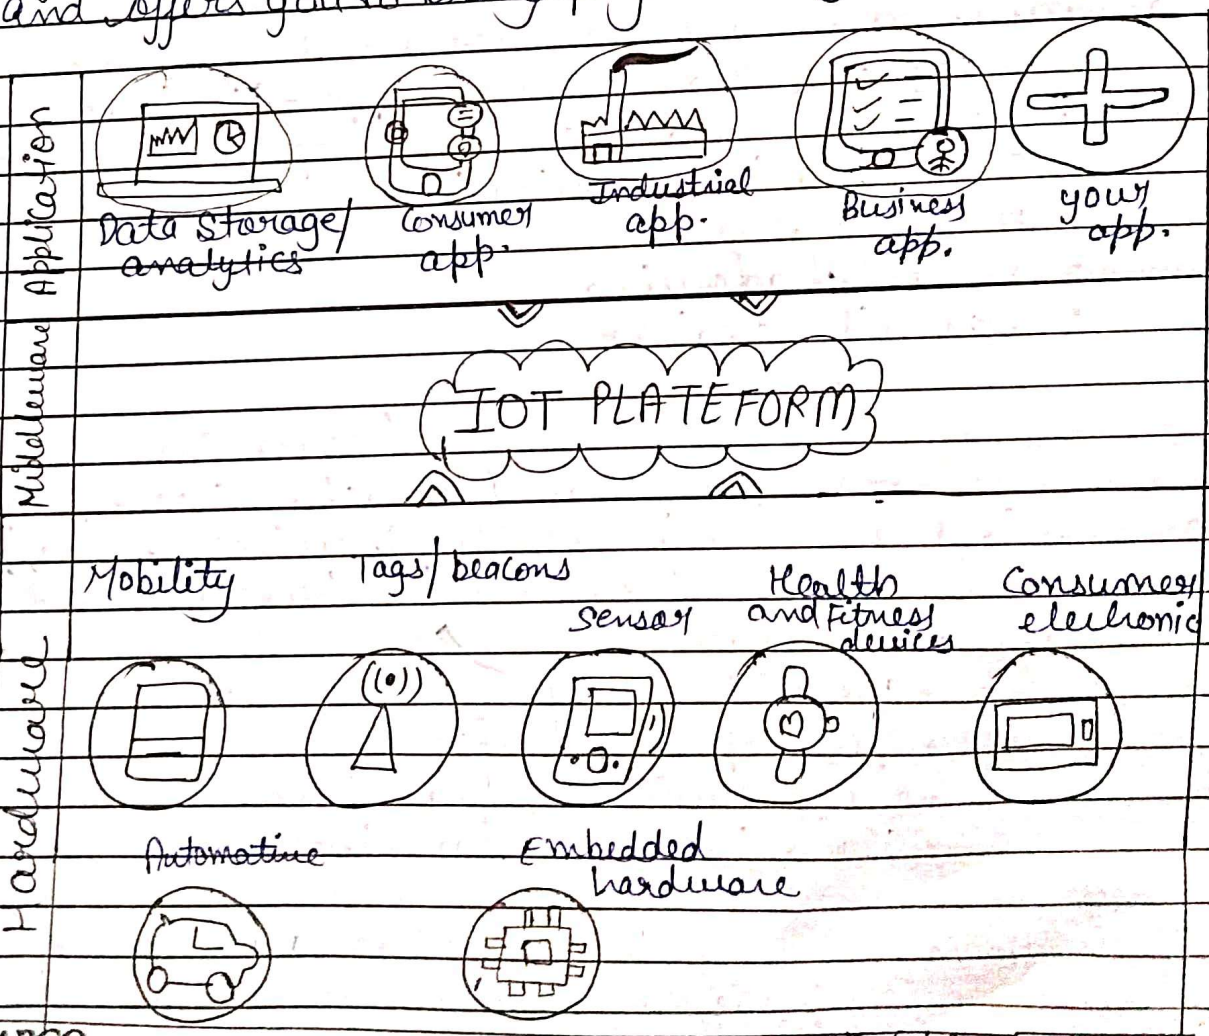 and offers you
Application
Data Storage/
analytics
Consumer
app.
Industrial
app.
Business
app.
your
app.
Middleware
IOT PLATEFORM
Hardware
Mobility
Tags/beacons
Sensor
Health
and Fitness
devices
Consumer
electronic
Automotive
Embedded
hardware